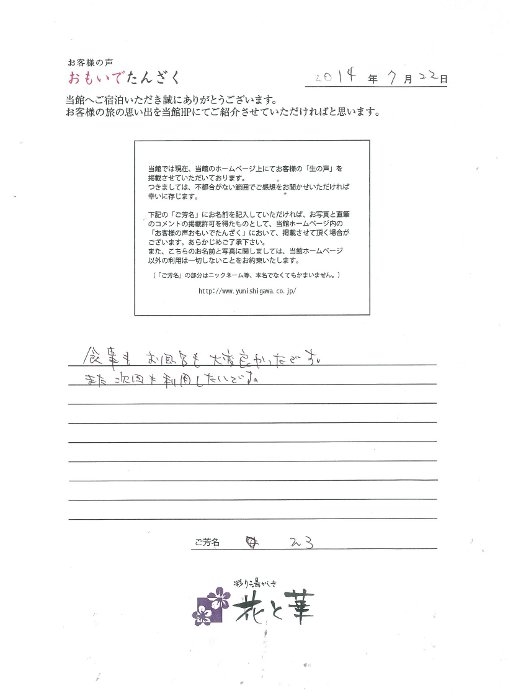 お客様の声
おもいでたんざく
2014 年 7 月 22 日
当館へご宿泊いただき誠にありがとうございます。
お客様の旅の思い出を当館HPにてご紹介させていただければと思います。
当館では現在、当館のホームページ上にてお客様の「生の声」を
掲載させていただいております。
つきましては、不都合がない範囲でご感想をお聞かせいただければ
幸いに存じます。
下記の「ご芳名」にお名前を記入していただければ、お写真と直筆
のコメントの掲載許可を得たものとして、当館ホームページ内の
「お客様の声おもいでたんざく」において、掲載させて頂く場合が
ございます。あらかじめご了承下さい。
また、こちらのお名前と写真に関しましては、当館ホームページ
以外の利用は一切しないことをお約束いたします。
(「ご芳名」の部分はニックネーム等、本名でなくてもかまいません。)
http://www.yunishigawa.co.jp/
食事も お風呂も 大変良かったです。
また 次回も 利用したいです。
ご芳名
彩り湯かしき
花と華